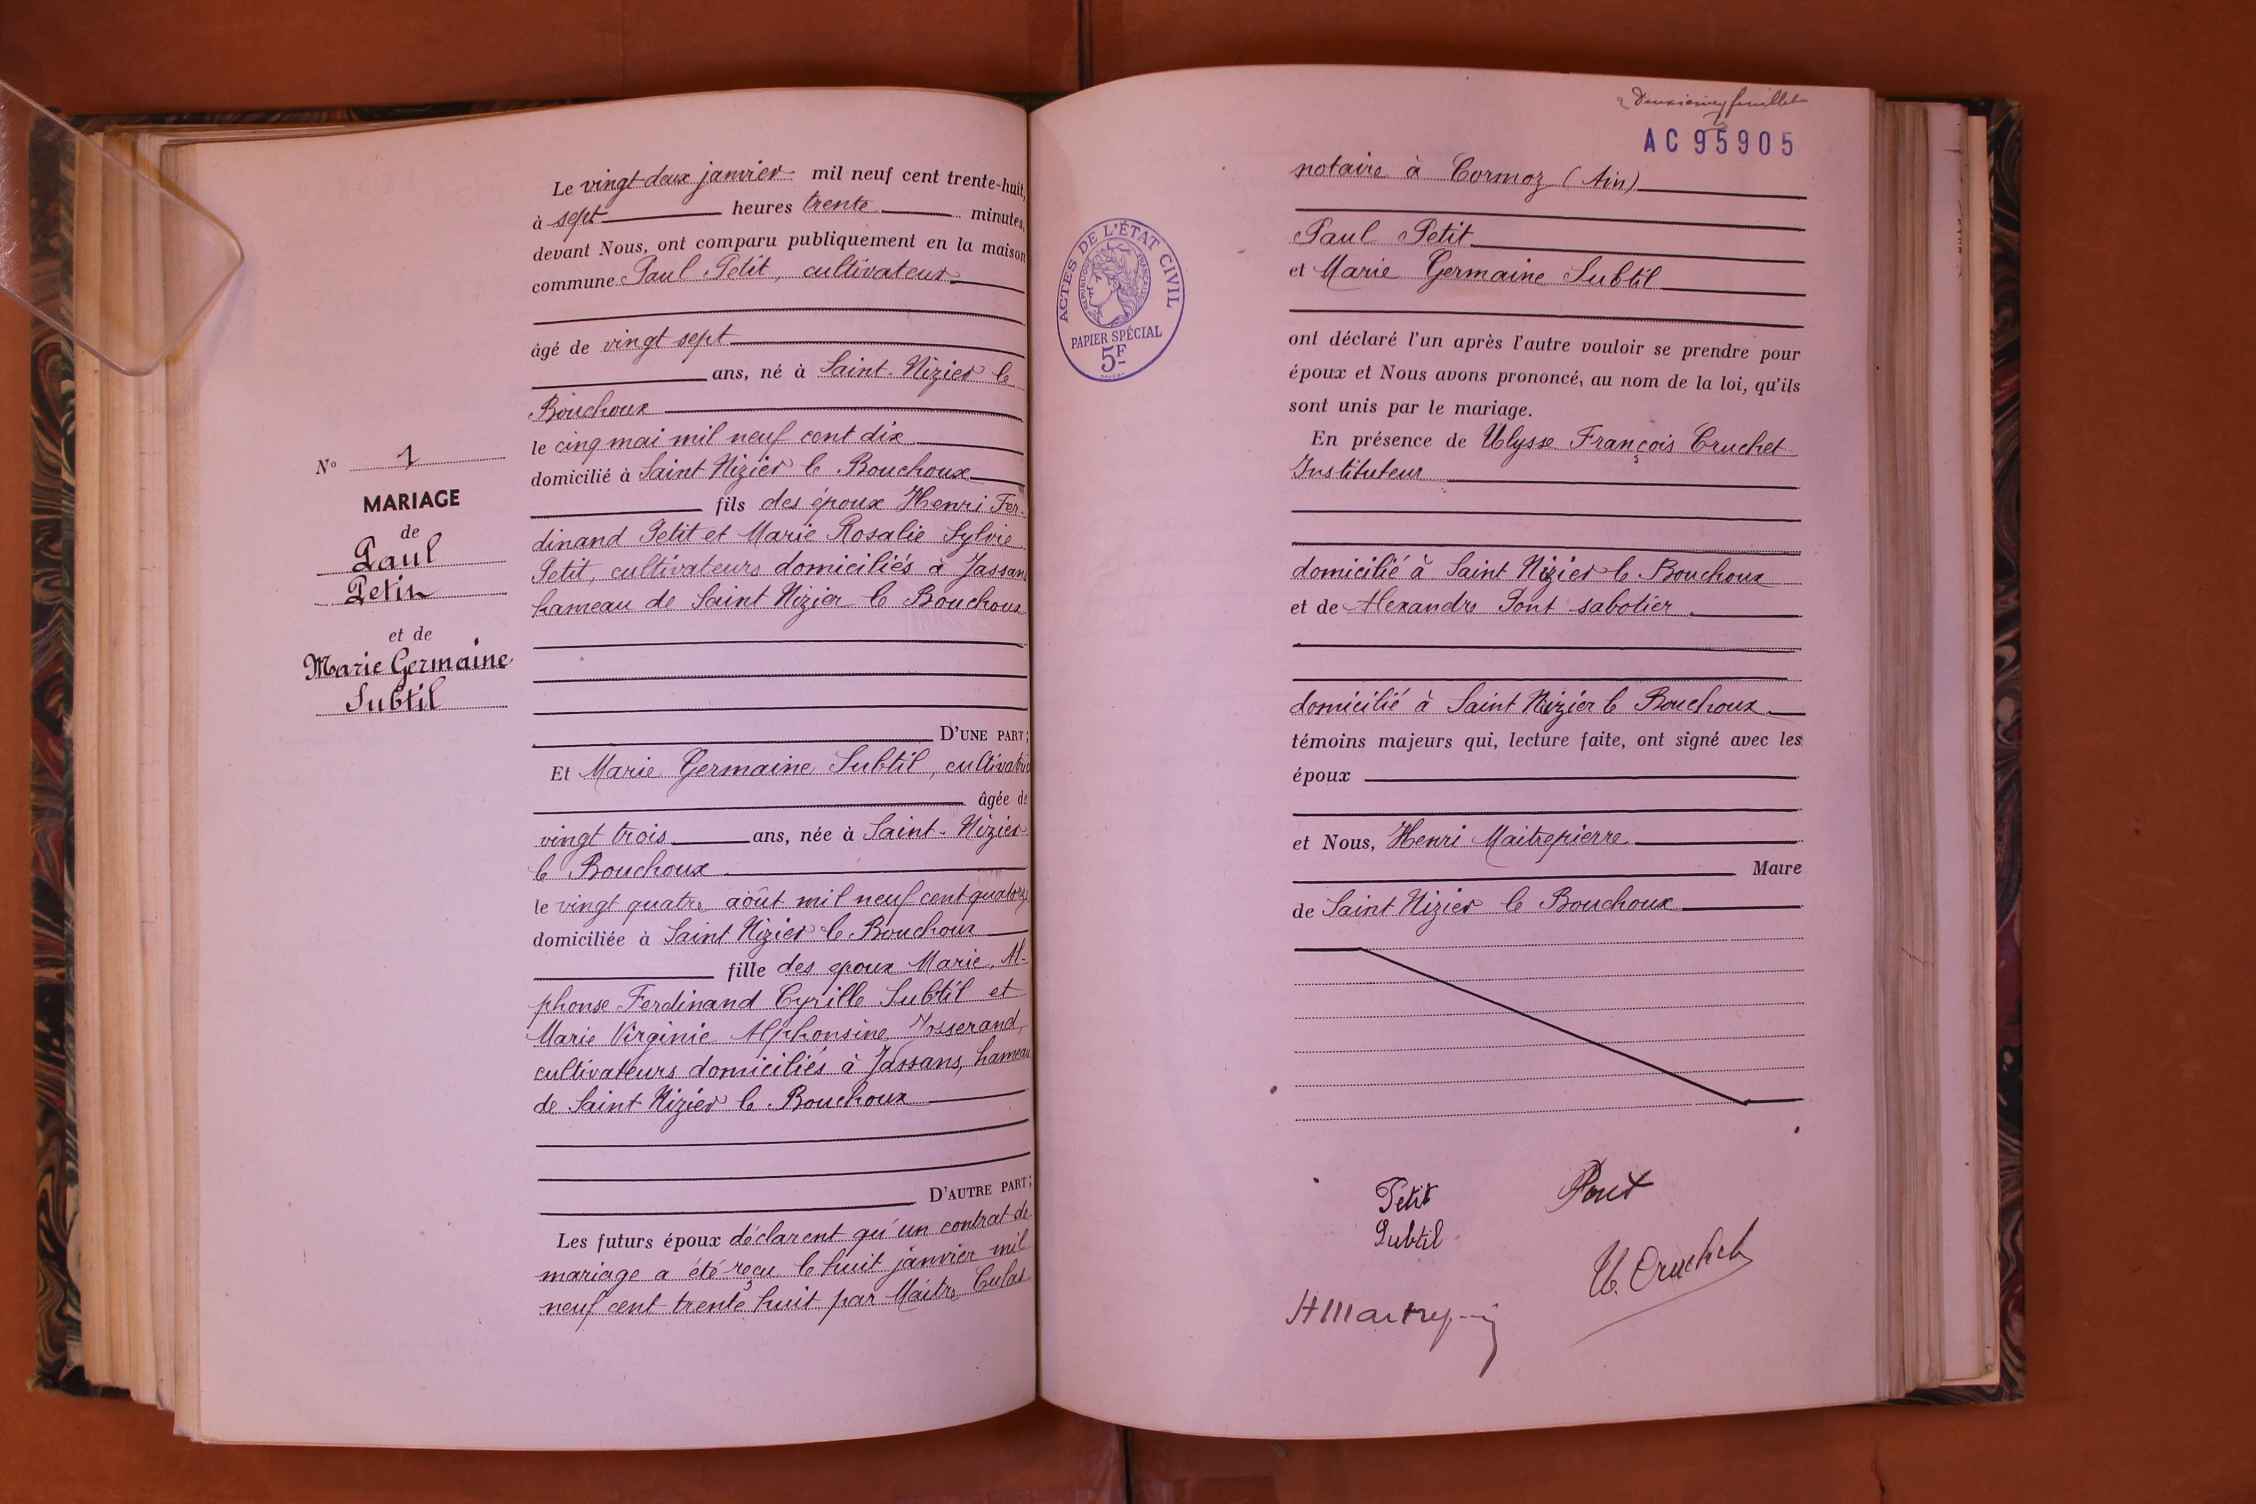 N° 1
MARIAGE
de
Paul
Petit
et de
Marie Germaine
Subtil
Le vingt deux janvier mil neuf cent trente-huit,
à sept heures trente minutes,
devant Nous, ont comparu publiquement en la maison
commune Paul Petit, cultivateur
âgé de vingt sept
ans, né à Saint-Nizier le
Bouchoux
le cinq mai mil neuf cent dix
domicilié à Saint Nizier le Bouchoux
fils des époux Henri Fer-
dinand Petit et Marie Rosalie Sylvie
Petit, cultivateurs domiciliés à Jassans
hameau de Saint Nizier le Bouchoux
D'UNE PART;
Et Marie Germaine Subtil, cultivatrice
âgée de
vingt trois ans, née à Saint-Nizier
le Bouchoux
le vingt quatre août mil neuf cent quatorze
domiciliée à Saint Nizier le Bouchoux
fille des epoux Marie, Al-
phonse Ferdinand Cyrille Subtil et
Marie Virginie Alphonsine Josserand,
cultivateurs domiciliés à Jassans, hameau
de Saint Nizier le Bouchoux
D'AUTRE PART;
Les futurs époux déclarent qu'un contrat de
mariage a été reçu le huit janvier mil
neuf cent trente huit par Maître Culas
Deuxième feuillet
AC 95905
ACTES DE L'ÉTAT CIVIL
RÉPUBLIQUE FRANÇAISE
PAPIER SPÉCIAL
5F
notaire à Cormoz (Ain)
Paul Petit
et Marie Germaine Subtil
ont déclaré l'un après l'autre vouloir se prendre pour
époux et Nous avons prononcé, au nom de la loi, qu'ils
sont unis par le mariage.
En présence de Ulysse François Cruchet
Instituteur
domicilié à Saint Nizier le Bouchoux
et de Alexandre Pont sabotier
domicilié à Saint Nizier le Bouchoux
témoins majeurs qui, lecture faite, ont signé avec les
époux
et Nous, Henri Maitrepierre
Maire
de Saint Nizier le Bouchoux
Petit
Pont
Subtil
U. Cruchet